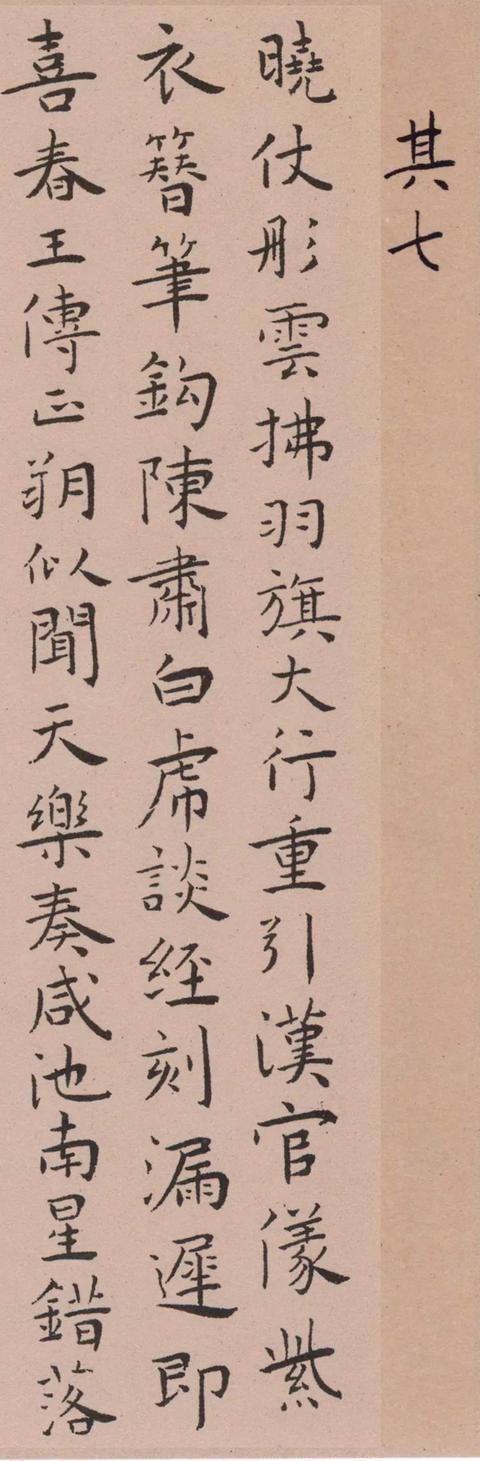 其七
曉仗彤雲拂羽旗大行重引漢官儀紫
衣簪筆鈎陳肅白虎談経刻漏遲即
喜春王傳正朔似聞天樂奏咸池南星錯落